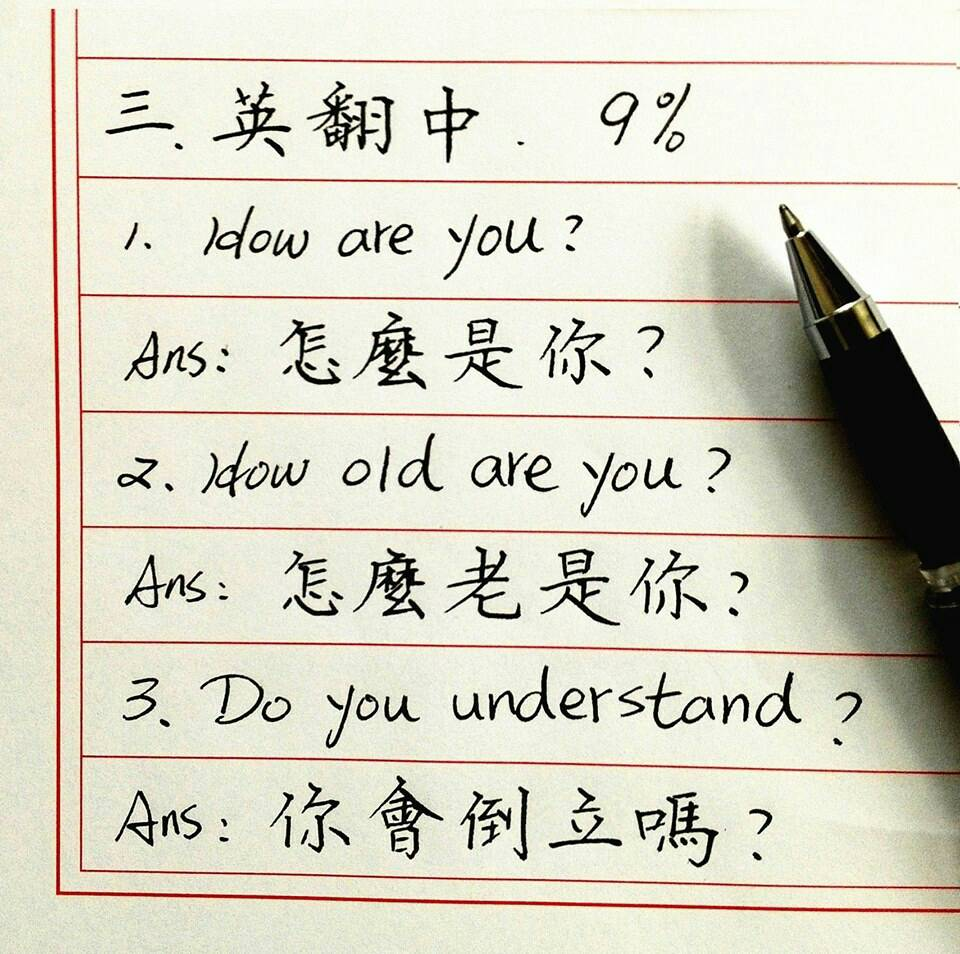 三. 英翻中. 9%
1. How are you?
Ans: 怎麼是你?
2. How old are you?
Ans: 怎麼老是你?
3. Do you understand?
Ans: 你會倒立嗎?